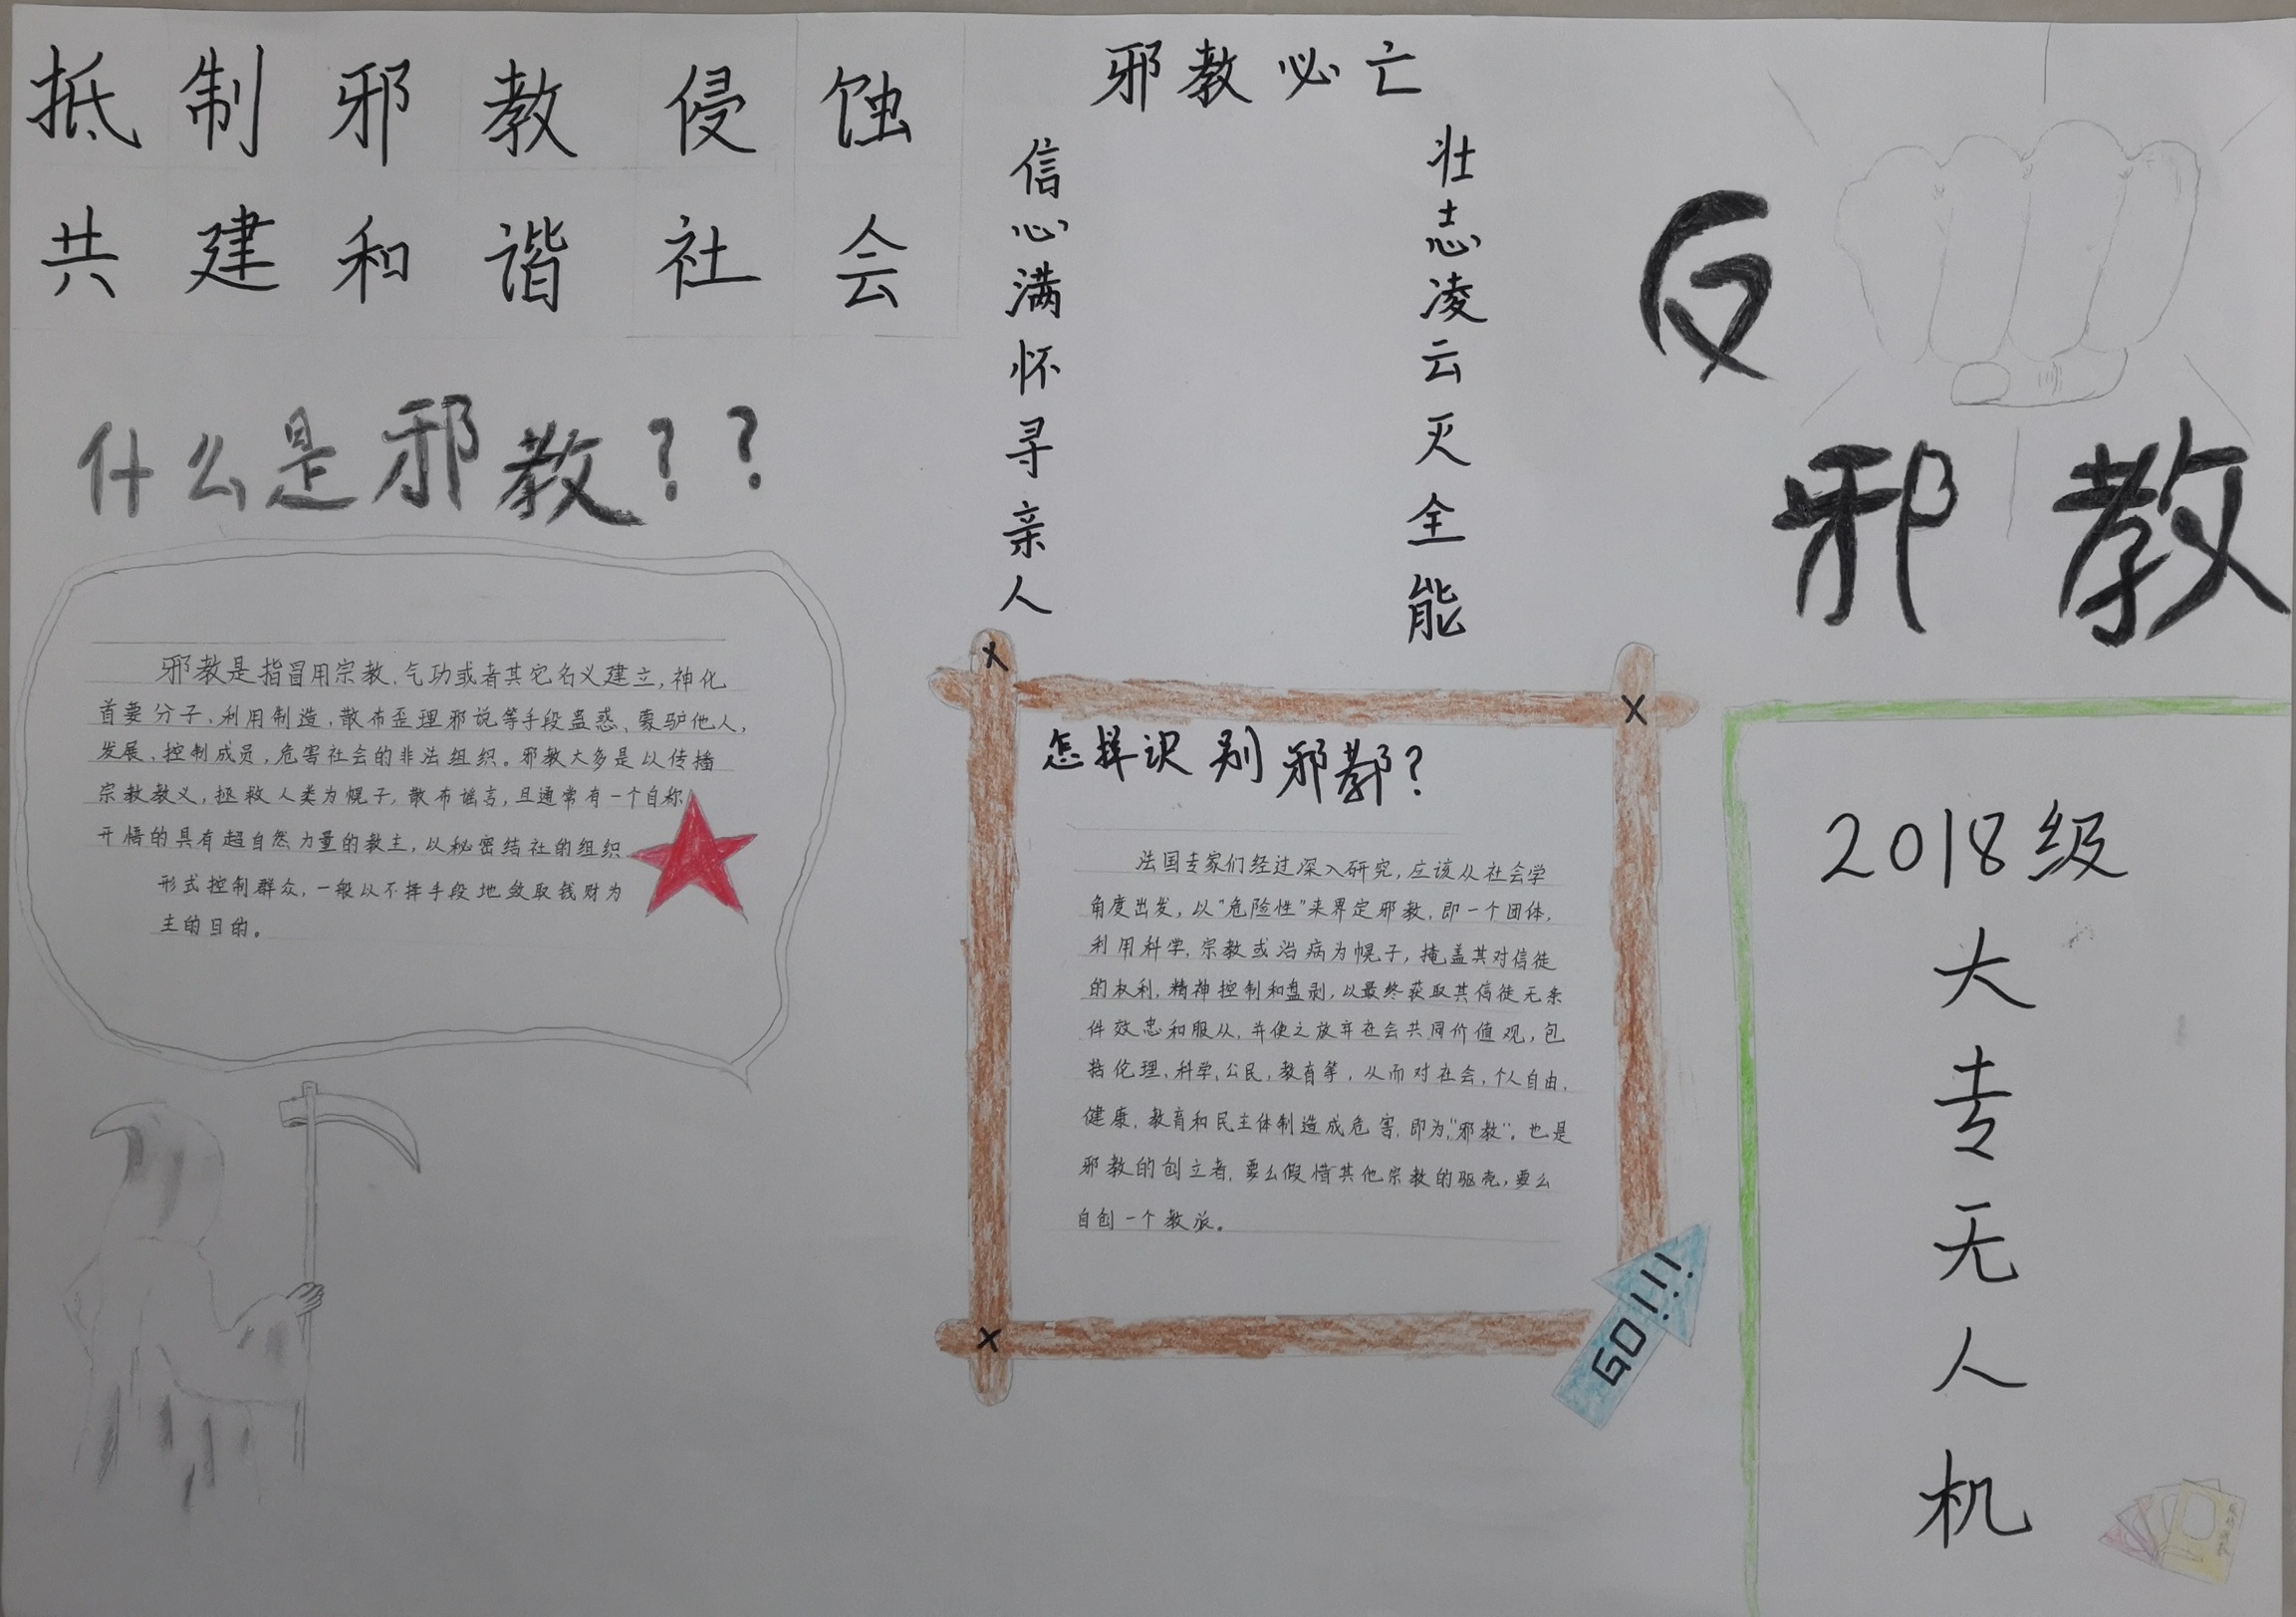 抵制邪教侵蚀
共建和谐社会
什么是邪教??
邪教是指冒用宗教、气功或者其它名义建立,神化
首要分子、利用制造、散布歪理邪说等手段蛊惑、蒙驴他人,
发展、控制成员,危害社会的非法组织。邪教大多是以传播
宗教教义,拯救人类为幌子,散布谣言,且通常有一个自称
开悟的具有超自然力量的教主,以秘密结社的组织
形式控制群众,一般以不择手段地敛取钱财为
主的目的。
邪教必亡
信心满怀寻亲人
壮志凌云灭全能
怎样识别邪教?
法国专家们经过深入研究,应该从社会学
角度出发,以"危险性"来界定邪教,即一个团体,
利用科学、宗教或治病为幌子,掩盖其对信徒
的权利、精神控制和盘剥,以最终获取其信徒无条
件效忠和服从,并使之放弃社会共同价值观,包
括伦理、科学、公民,教育等,从而对社会,个人自由、
健康、教育和民主体制造成危害,即为"邪教"。也是
邪教的创立者,要么假借其他宗教的躯壳,要么
自创一个教派。
GO!!!
反
邪教
2018级
大专无人机